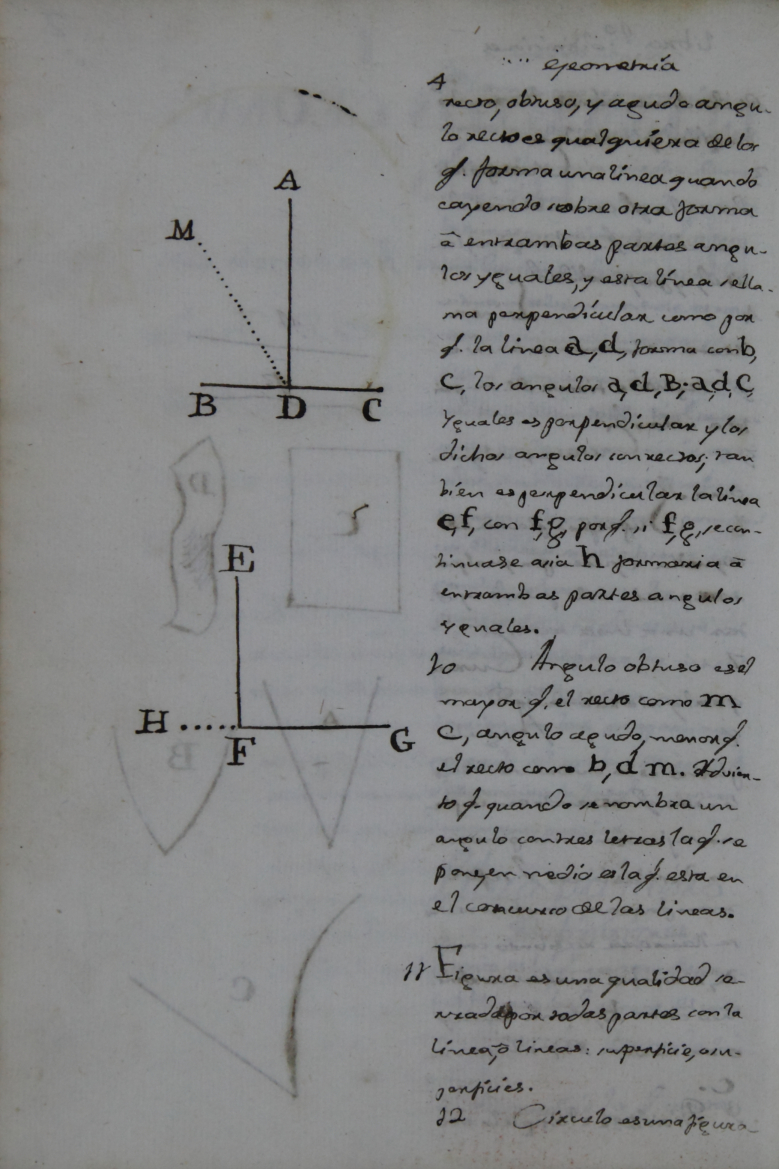 Geometria
4
recto, obtuso, y agudo angu-
lo recto es qualquiera de los
q. forma una línea quando
cayendo sobre otra forma
â entrambas partes angu-
los yguales, y esta línea sella-
ma perpendícular como por
q. la línea a,d, forma con b,
C, los angulos a,d,B; a,d,C,
yguales es perpendícular y los
dichos angulos son rectos; tan
bíen es perpendícular la línea
e,f, con f,g, por q. si f,g, se con-
tinuase acia h formaria â
entrambas partes angulos
yguales.
10 Angulo obtuso es el
mayor q. el recto como m
C, angulo agudo, menor q.
el recto como b,d m. Advier-
to q. quando se nombra un
angulo con tres letras la q. se
pone en medio es la q. esta en
el concurso de las lineas.
11 Figura es una qualidad se-
rrada por todas partes con la
línea, o lineas: superficie, o su-
perficies.
12 Círculo es una figura
A
M
B D C
E
H F G
D
B
A
C